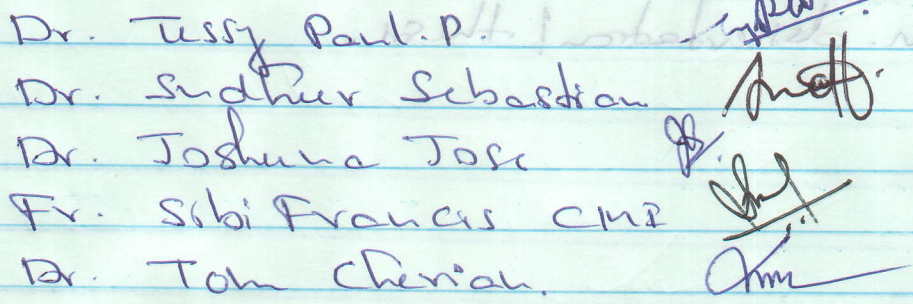 Dr. Tessy Paul.P.
Dr. Sudheer Sebastian
Dr. Joshuna Jose
Fr. Sibi Francis CMI
Dr. Tom Cherian.